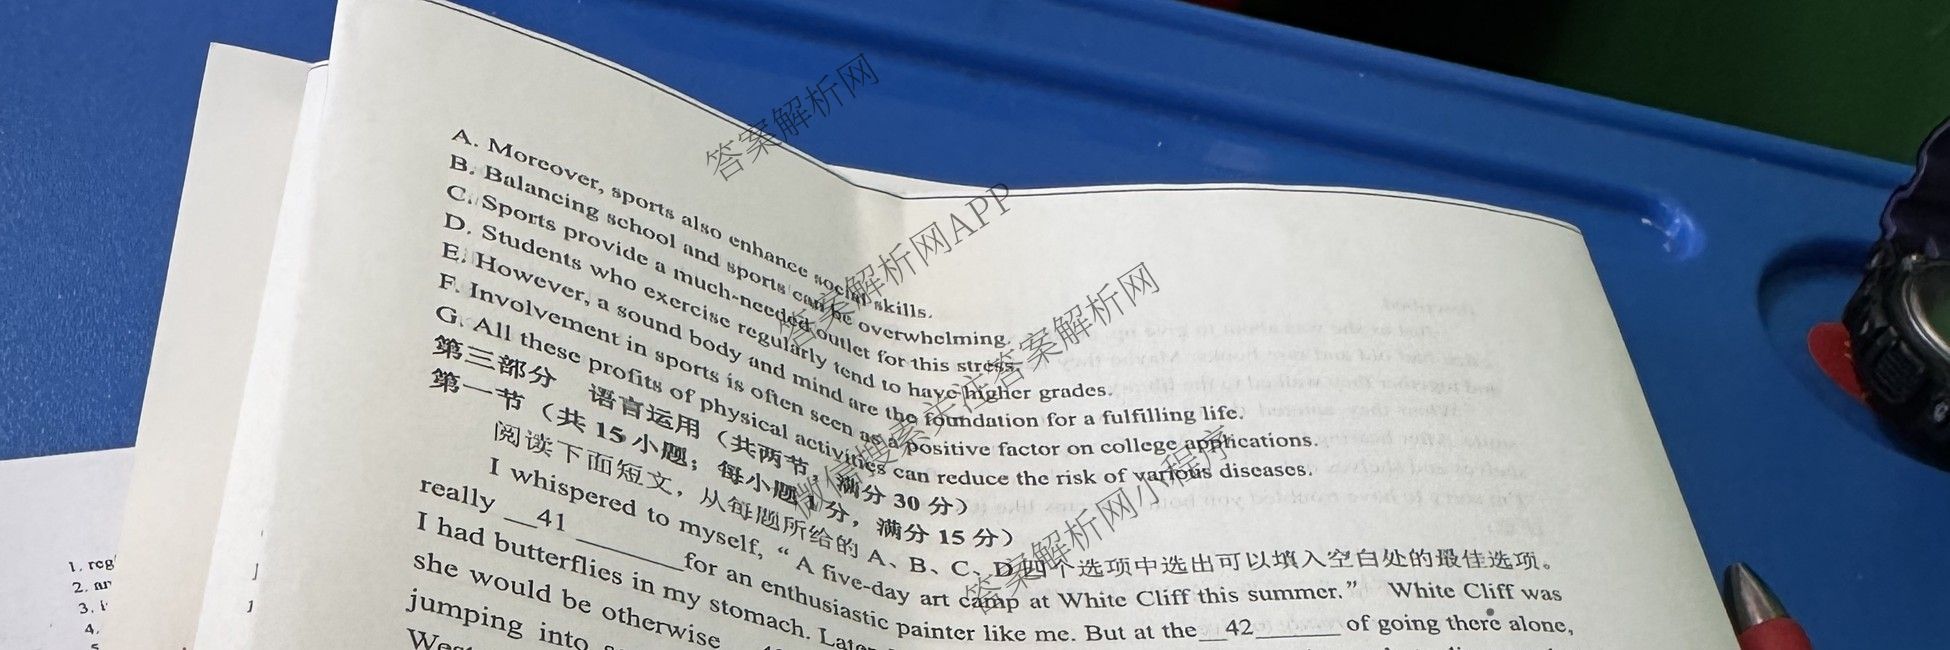 A. Moreover, sports also enhance social skills.
B. Balancing school and sports can be overwhelming.
C. Sports provide a much-needed outlet for this stress.
D. Students who exercise regularly tend to have higher grades.
E. However, a sound body and mind are the foundation for a fulfilling life.
F. Involvement in sports is often seen as a positive factor on college applications.
G. All these profits of physical activities can reduce the risk of various diseases.
第三部分 语言运用（共两节，满分 30 分）
第一节（共 15 小题；每小题 1 分，满分 15 分）
阅读下面短文，从每题所给的 A、B、C、D 四个选项中选出可以填入空白处的最佳选项。
I whispered to myself, “A five-day art camp at White Cliff this summer.” White Cliff was
really __41______ for an enthusiastic painter like me. But at the __42______ of going there alone,
I had butterflies in my stomach. Later
she would be otherwise
jumping into
1. reg
2. an
3.
4.
5
答案解析网
答案解析网APP
微信搜索关注答案解析网
答案解析网小程序